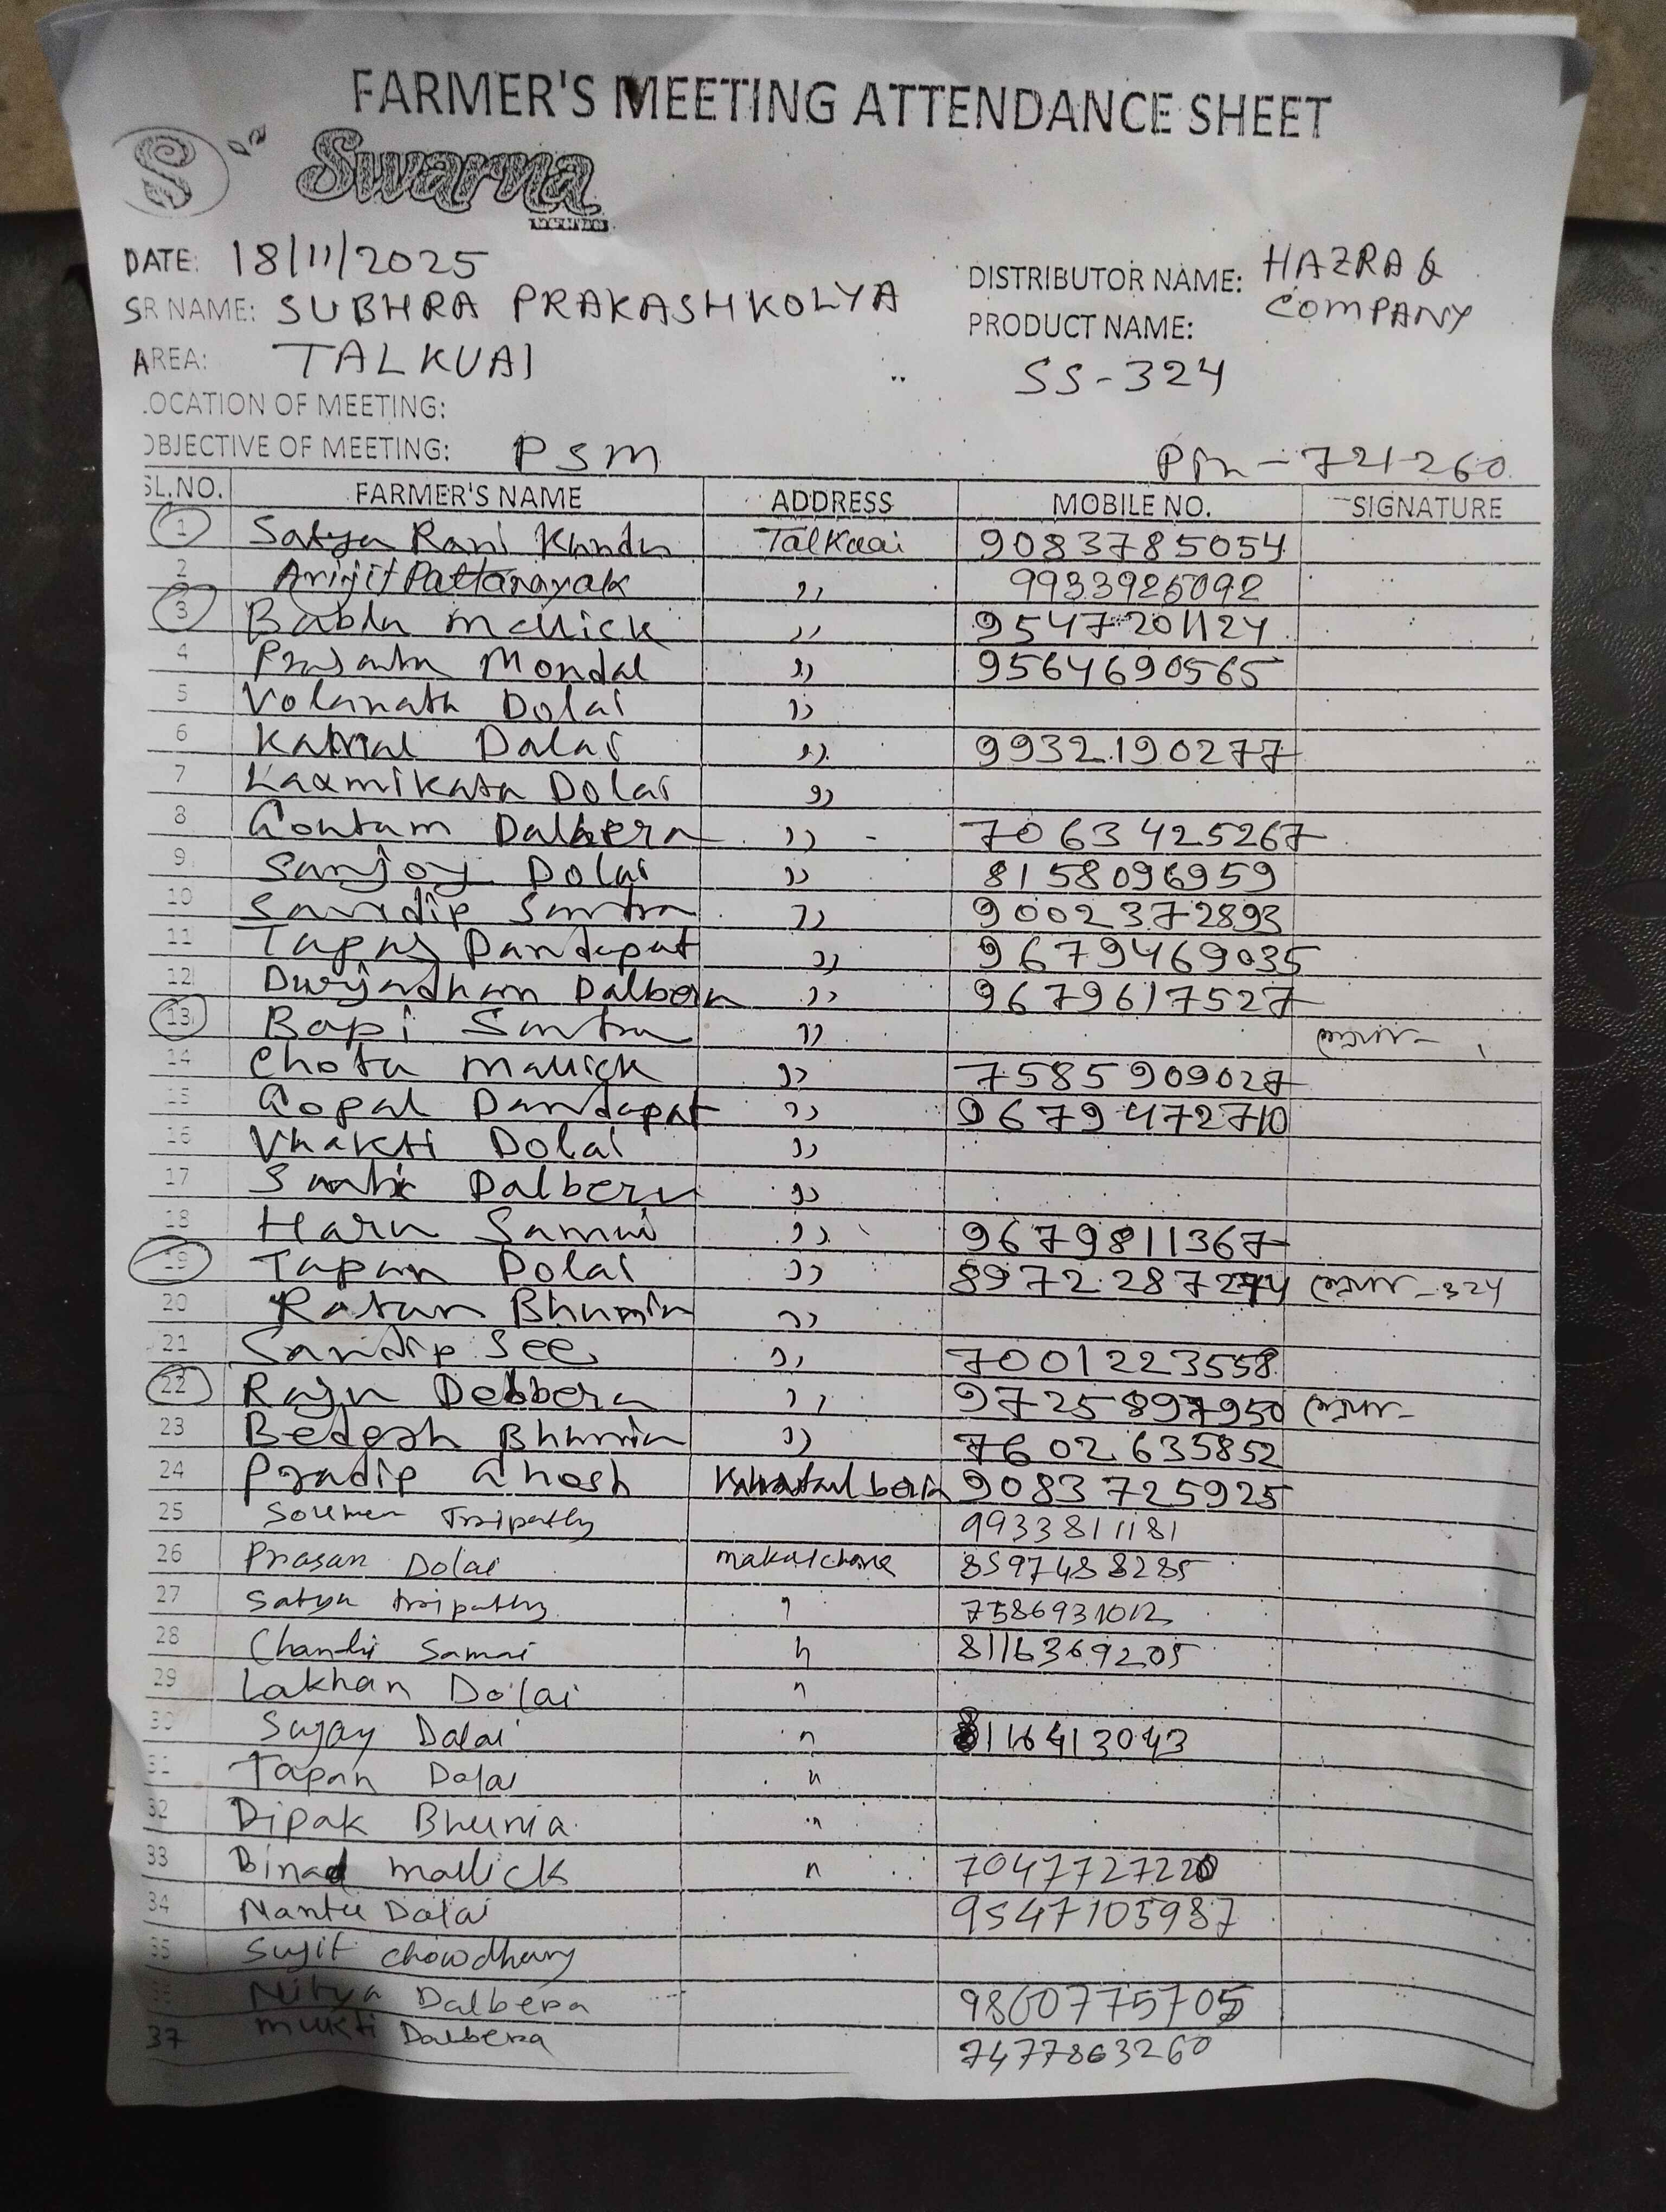 FARMER'S MEETING ATTENDANCE SHEET
S Swarna
DATE: 18/11/2025
DISTRIBUTOR NAME: HAZRA & COMPANY
SR NAME: SUBHRA PRAKASH KOLYA
PRODUCT NAME: SS-324
AREA: TALKUAI
LOCATION OF MEETING:
OBJECTIVE OF MEETING: PSM
Pin - 721260
SL.NO. FARMER'S NAME ADDRESS MOBILE NO. SIGNATURE
1 Satya Rani Kundu Talkuai 9083785054
2 Arijit Pattanayak ,, 9933925092
3 Bablu Mallick ,, 9547201124
4 Prasanta Mondal ,, 9564690565
5 Volanath Dolai ,,
6 Kamal Dalai ,, 9932190277
7 Laxmikata Dolai ,,
8 Goutam Dalbera ,, 7063425267
9 Sanjoy Dolai ,, 8158096959
10 Sandip Santra ,, 9002372893
11 Tapas Dandapat ,, 9679469035
12 Durjadhan Dalbera ,, 9679617527
13 Bapi Santra ,,
14 Chota Mallick ,, 7585909027
15 Gopal Dandapat ,, 9679472710
16 Vhakti Dolai ,,
17 Dalbera ,,
18 Haru Samui ,, 9679811367
19 Tapan Dolai ,, 8972287274 324
20 Ratan Bhunia ,,
21 Sandip See ,, 7001223558
22 Raju Debbera ,, 9725897950
23 Bedesh Bhunia ,, 7602635852
24 Pradip Ghosh 9083725925
25 Soumen Tripathy 9933811181
26 Prasan Dolai makalchak 8597488285
27 Satya tripathy " 7586931012
28 Chandi Samai " 8116369205
29 Lakhan Dolai "
30 Sujay Dalai " 8116413043
31 Tapan Dalai "
32 Dipak Bhunia "
33 Binad mallick " 7047727220
34 Nantu Dalai 9547105987
35 Sujit chowdhury
36 Nitya Dalbera 9860775705
37 Mukti Dalbera 7477863260